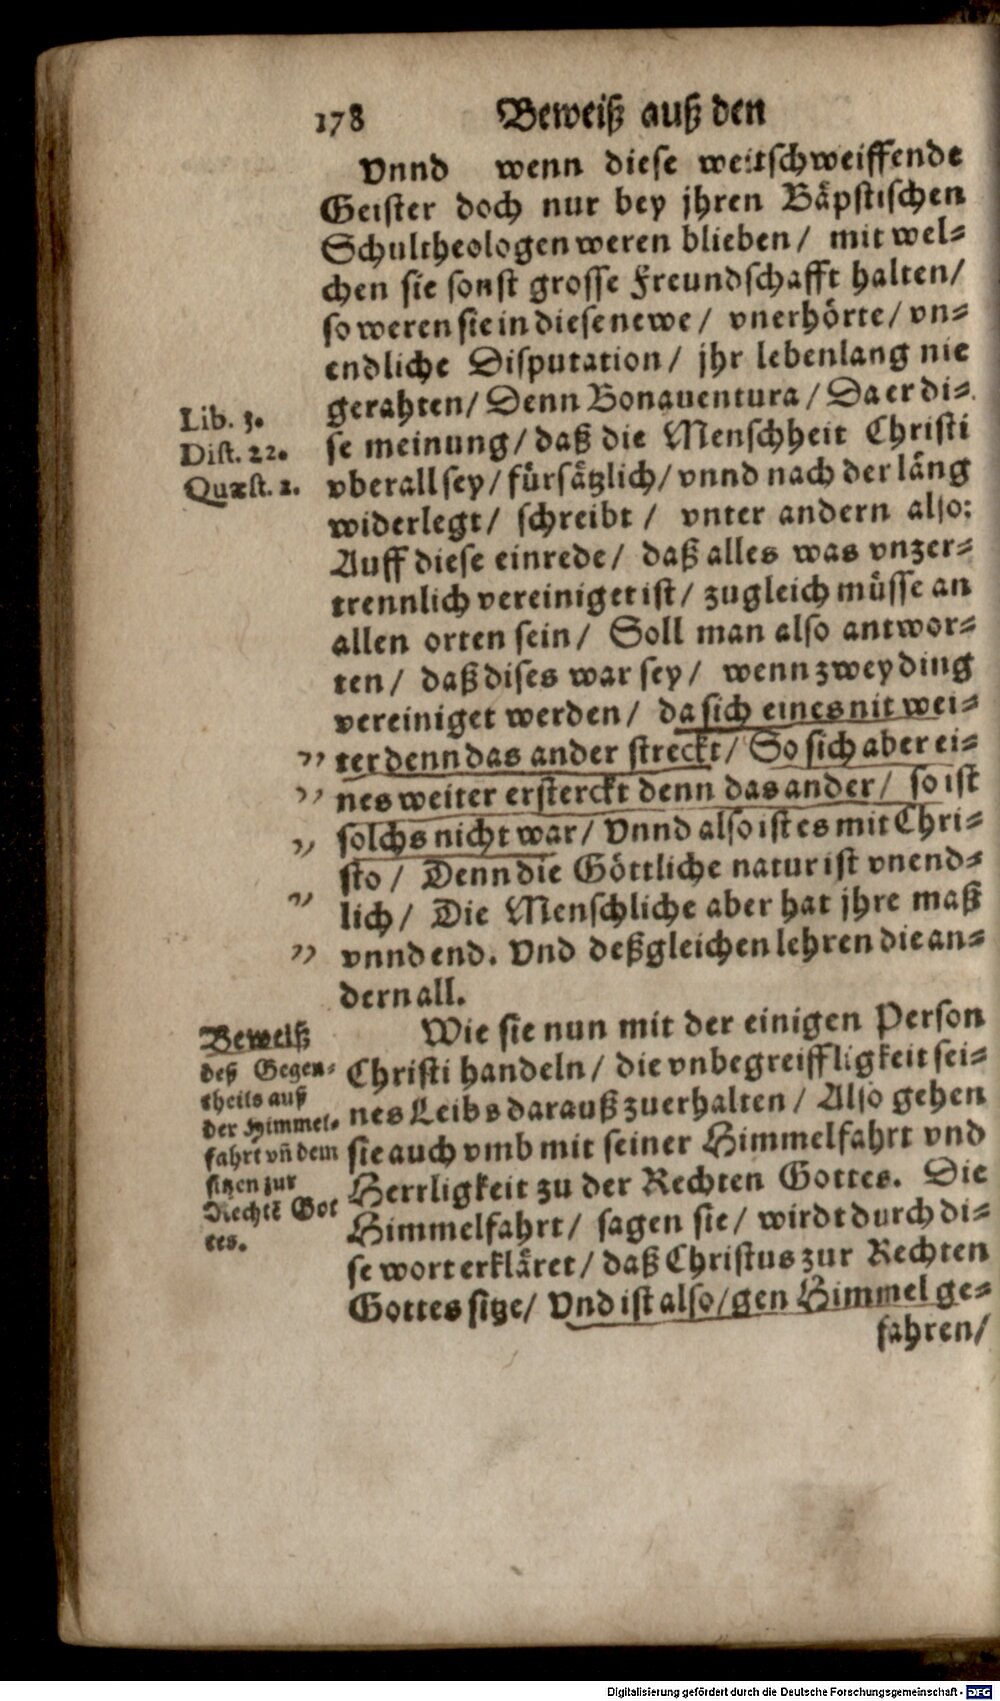 178 Beweiß auß den
Vnnd wenn diese weitschweiffende
Geister doch nur bey jhren Bäpstischen
Schultheologen weren blieben / mit wel⸗
chen sie sonst grosse Freundschafft halten /
so weren sie in diese newe / vnerhörte / vn⸗
endliche Disputation / jhr lebenlang nie
gerahten / Denn Bonauentura / Da er di⸗
Lib. 3.
Dist. 22.
Quæst. 2.
se meinung / daß die Menschheit Christi
vberall sey / fürsätzlich / vnnd nach der läng
widerlegt / schreibt / vnter andern also:
Auff diese einrede / daß alles was vnzer⸗
trennlich vereiniget ist / zugleich müsse an
allen orten sein / Soll man also antwor⸗
ten / daß dises war sey / wenn zwey ding
vereiniget werden / da sich eines nit wei⸗
ter denn das ander streckt / So sich aber ei⸗
nes weiter ersterckt denn das ander / so ist
solchs nicht war / Vnnd also ist es mit Chri⸗
sto / Denn die Göttliche natur ist vnend⸗
lich / Die Menschliche aber hat jhre maß
vnnd end. Vnd deßgleichen lehren die an⸗
dern all.
Beweiß
deß Gegen⸗
theils auß
der Himmel⸗
fahrt vñ dem
sitzen zur
Rechtē Got
tes.
Wie sie nun mit der einigen Person
Christi handeln / die vnbegreiffligkeit sei⸗
nes Leibs darauß zuerhalten / Also gehen
sie auch vmb mit seiner Himmelfahrt vnd
Herrligkeit zu der Rechten Gottes. Die
Himmelfahrt / sagen sie / wirdt durch di⸗
se wort erkläret / daß Christus zur Rechten
Gottes sitze / Vnd ist also / gen Himmel ge⸗
fahren /
Digitalisierung gefördert durch die Deutsche Forschungsgemeinschaft - DFG